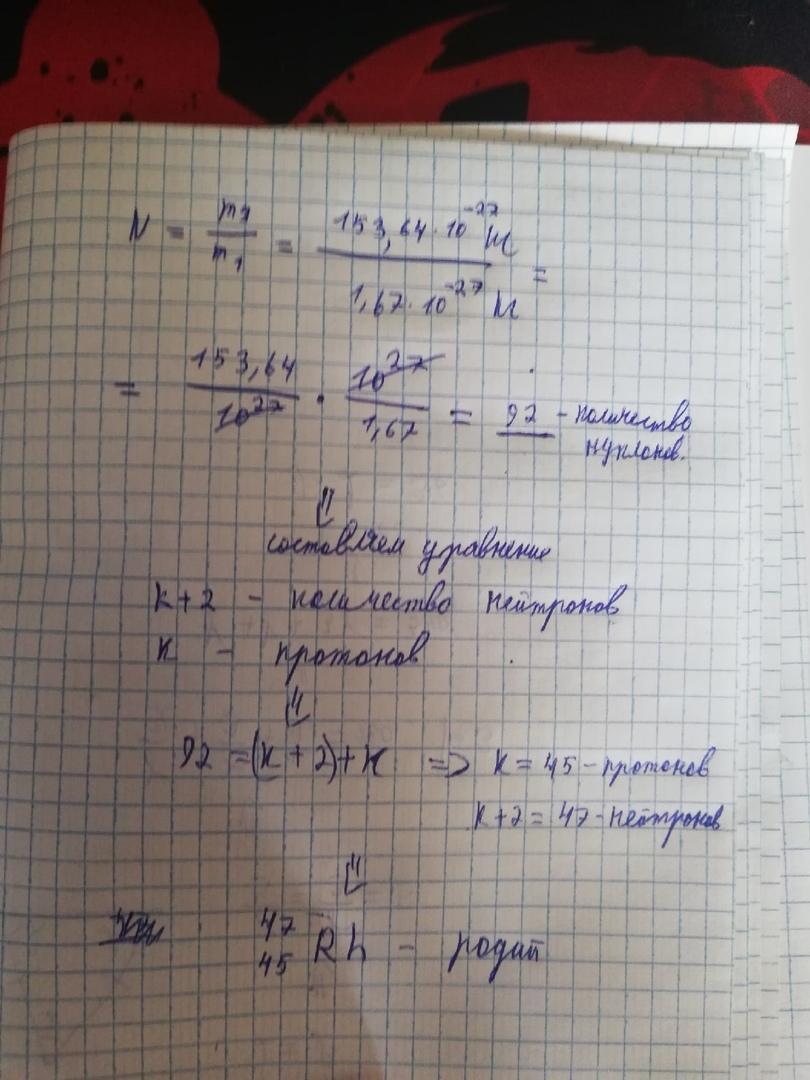 N = m₂/m₁ = 153,64 · 10⁻²⁷ м / 1,67 · 10⁻²⁷ м =
= 153,64/10²⁷ · 10²⁷/1,67 = 92 - количество
нуклонов.
⇓
составляем уравнение
k+2 - количество нейтронов
k - протонов
⇓
92 = (k + 2) + k => k = 45 - протонов
k+2 = 47 - нейтронов
⇓
⁴⁷₄₅Rh - родий